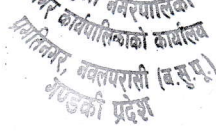 नगर कार्यपालिकाको कार्यालय
प्रगतिनगर, नवलपरासी (ब.सु.पू.)
गण्डकी प्रदेश